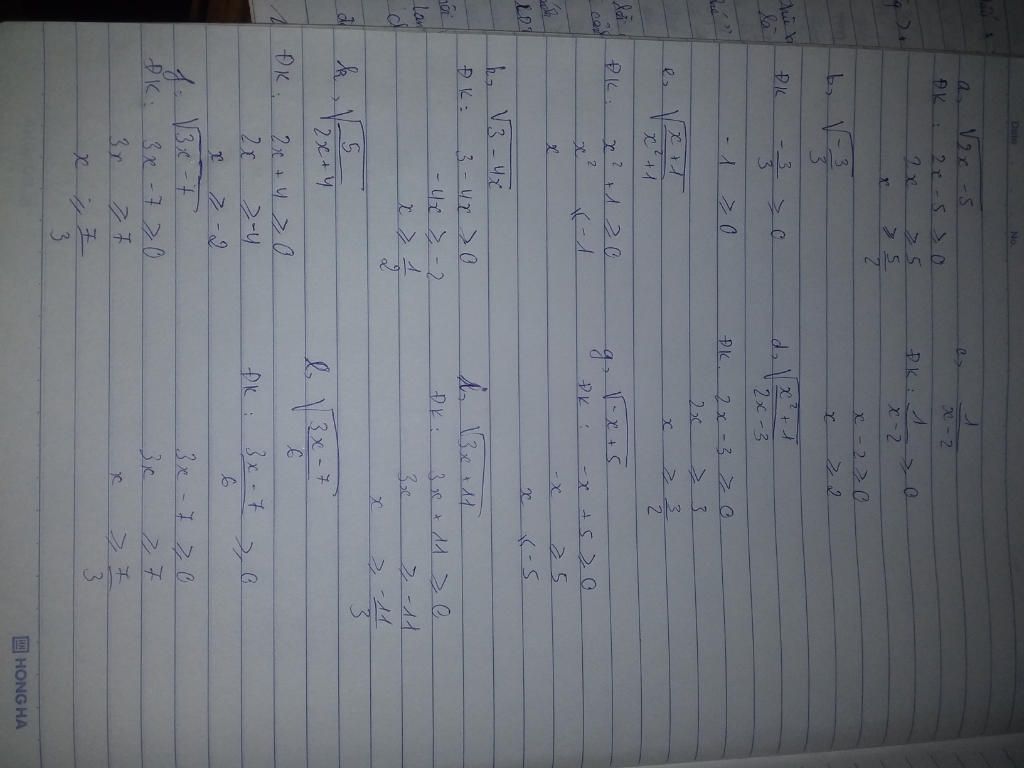 Date No.
a, √2x-5
ĐK: 2x-5 ≥ 0
2x ≥ 5
x ≥ 5/2
b, √(-3/3)
ĐK -3/3 ≥ 0
-1 ≥ 0
c, 1/(x-2)
ĐK: 1/(x-2) ≥ 0
x-2 ≥ 0
x ≥ 2
d, √((x²+1)/(2x-3))
ĐK. 2x-3 ≥ 0
2x ≥ 3
x ≥ 3/2
e, √((x+1)/(x²+1))
ĐK: x²+1 ≥ 0
x² ≤ -1
x
g, √-x+5
ĐK: -x+5 ≥ 0
-x ≥ 5
x ≤ -5
h, √3-4x
ĐK: 3-4x ≥ 0
-4x ≥ -2
x ≥ 1/2
√3x+11
ĐK: 3x+11 ≥ 0
3x ≥ -11
x ≥ -11/3
k, √(5/(2x+4))
ĐK: 2x+4 ≥ 0
2x ≥ -4
x ≥ -2
l, √((3x-7)/6)
ĐK: (3x-7)/6 ≥ 0
3x-7 ≥ 0
3x ≥ 7
x ≥ 7/3
√3x-7
ĐK: 3x-7 ≥ 0
3x ≥ 7
x ≥ 7/3
HONG HA